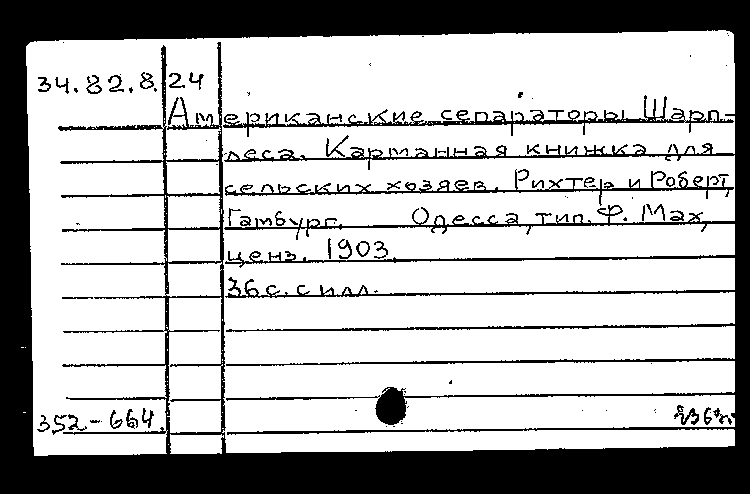 34.82.8.24
Американские сепараторы Шарп-
леса. Карманная книжка для
сельских хозяев. Рихтер и Роберт,
Гамбург. Одесса, тип. Ф. Мах,
ценз. 1903.
36 с. с илл.
352-664.